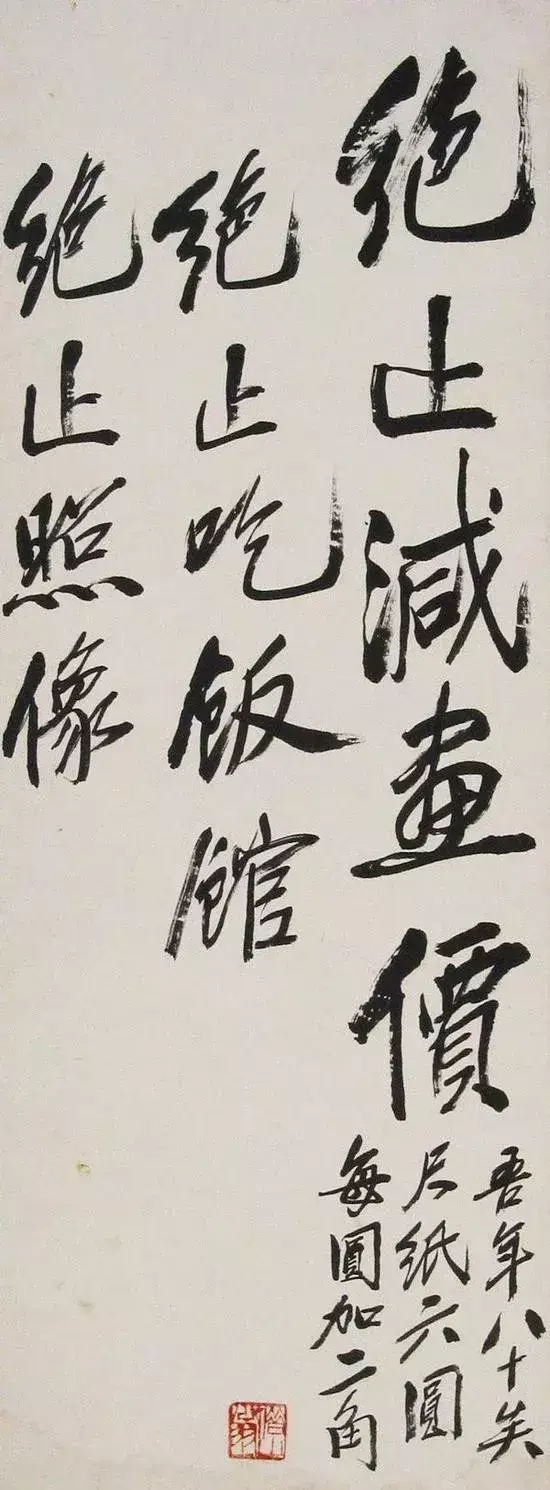 絶止減畫價
吾年八十矣
尺紙六圓
每圓加二角
絶止吃飯館
絶止照像
借翁